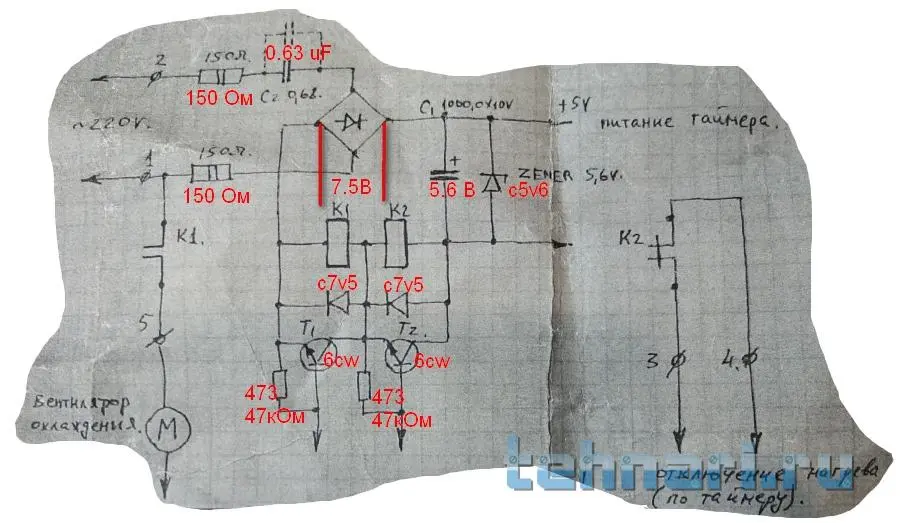 2
150Л.
0.63 uF
150 Ом
C2 0,62.
~220V.
C1 1000,0 x 10V
+5V
питание таймера.
1
150Л.
150 Ом
7.5В
+
5.6 В
ZENER 5,6V.
c5v6
K1.
K1
K2
K2
c7v5
c7v5
5
T1
T2.
6cw
6cw
3
4.
473
47кОм
473
47кОм
Вентилятор
охлаждения
M
tehnart.ru
отключение нагрева
(по таймеру).